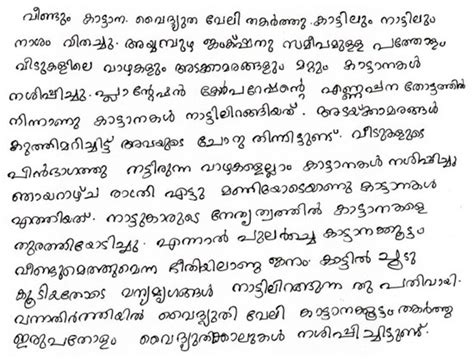 വീണ്ടും കാട്ടാന. വൈദ്യുത വേലി തകർത്തു. കാട്ടിലും നാട്ടിലും
നാശം വിതച്ചു. അയ്യമ്പുഴ ജംക്‌ഷനു സമീപമുള്ള പത്തോളം
വീടുകളിലെ വാഴകളും അടക്കാമരങ്ങളും മറ്റും കാട്ടാനകൾ
നശിപ്പിച്ചു. പ്ലാന്റേഷൻ കോർപറേഷന്റെ എണ്ണപ്പന തോട്ടത്തിൽ
നിന്നാണു കാട്ടാനകൾ നാട്ടിലിറങ്ങിയത്. അടയ്ക്കാമരങ്ങൾ
കുത്തിമറിച്ചിട്ട് അവയുടെ ചോറു തിന്നിട്ടുണ്ട്. വീടുകളുടെ
പിൻഭാഗത്തു നട്ടിരുന്ന വാഴകളെല്ലാം കാട്ടാനകൾ നശിപ്പിച്ചു
ഞായറാഴ്ച രാത്രി എട്ടു മണിയോടെയാണു കാട്ടാനകൾ
എത്തിയത്. നാട്ടുകാരുടെ നേതൃത്വത്തിൽ കാട്ടാനകളെ
തുരത്തിയോടിച്ചു. എന്നാൽ പുലർച്ചെ കാട്ടാനക്കൂട്ടം
വീണ്ടുമെത്തുമെന്ന ഭീതിയിലാണു ജനം. കാട്ടിൽ ചൂടു
കൂടിയതോടെ വന്യമൃഗങ്ങൾ നാട്ടിലിറങ്ങുന്ന തു പതിവായി.
വനാതിർത്തിയിൽ വൈദ്യുതി വേലി കാട്ടാനക്കൂട്ടം തകർത്തു
ഇരുപതോളം വൈദ്യുതക്കാലുകൾ നശിപ്പിച്ചിട്ടുണ്ട്.